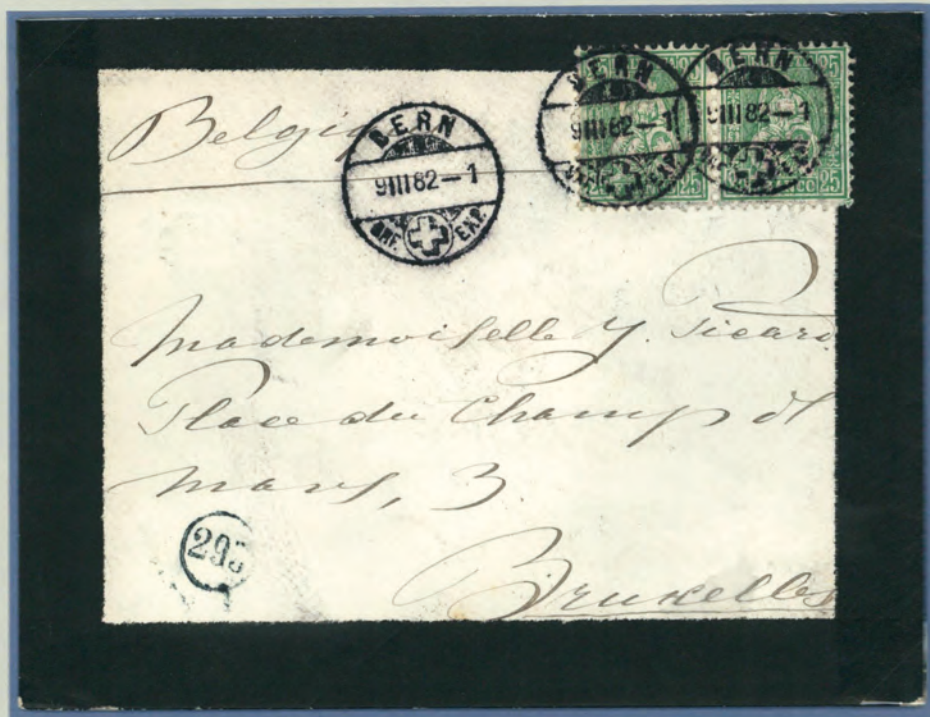 Belgi
BERN
9III82–1
BRF. EXP.
BERN
9III82–1
EXP.
BERN
9III82–1
25 25
25 25
Mademoiselle J. Picard
Place du Champ d
mars, 3.
Bruxelles